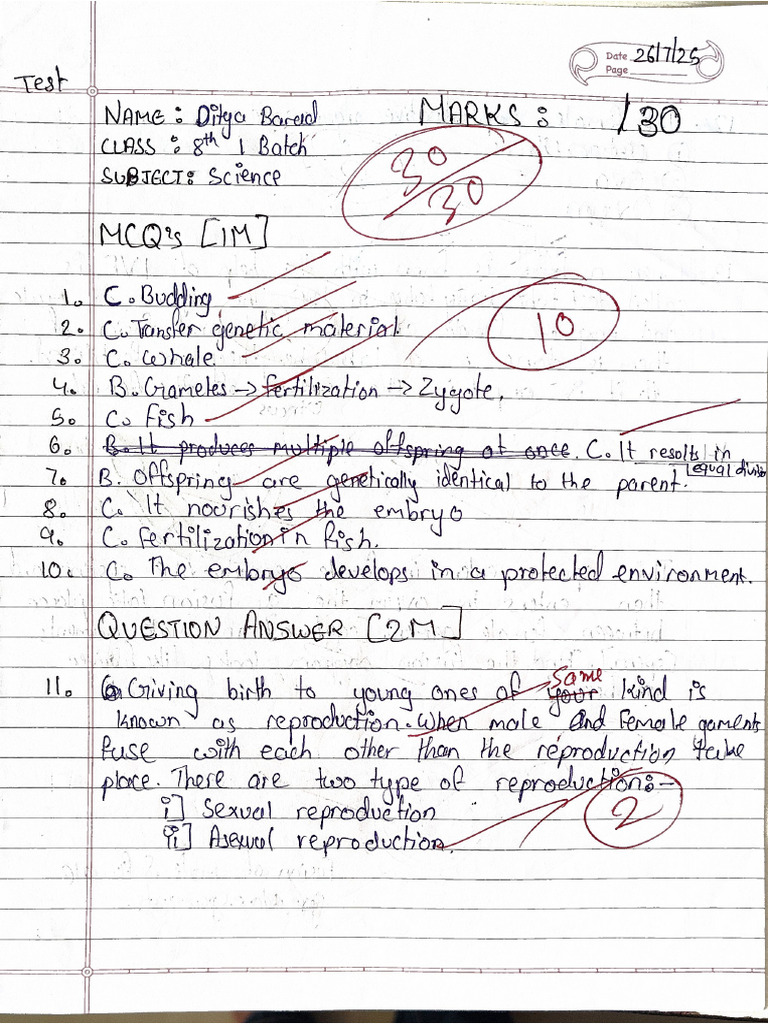 Date 26/7/25
Page
Test
NAME: Ditya Barad MARKS: /30
CLASS: 8th 1 Batch
SUBJECT: Science
30/30
MCQ's [1M]
1. C. Budding
10
2. C. Transfer genetic material.
3. C. Whale
4. B. Gametes → fertilization → Zygote.
5. C. Fish
6. B. It produces multiple offspring at once. C. It results in
equal divisio
7. B. Offspring are genetically identical to the parent.
8. C. It nourishes the embryo
9. C. Fertilization in fish.
10. C. The embryo develops in a protected environment.
QUESTION ANSWER [2M]
Same
11. Giving birth to young ones of your kind is
known as reproduction. When male and Female gaments
fuse with each other than the reproduction take
place. There are two type of reproduction:-
i] Sexual reproduction
2
ii] Asexual reproduction.